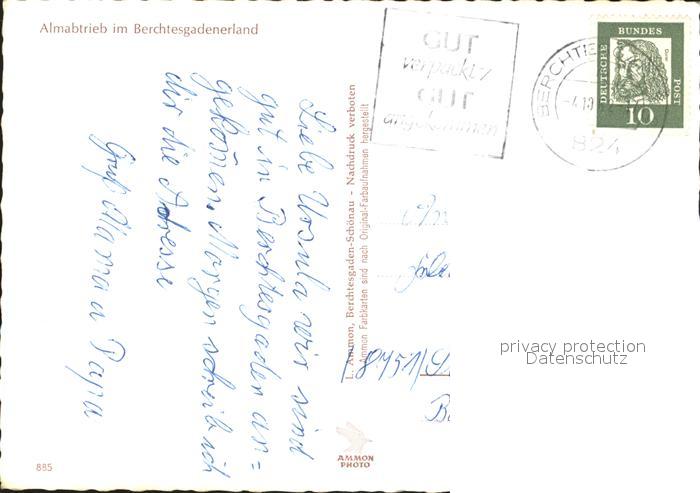 Almabtrieb im Berchtesgadenerland
GUT
verpackt /
GUT
angekommen
BERCHTE
-4.10
824
DEUTSCHE
BUNDES
POST
10
Liebe Ursula wir sind
gut in Berchtesgaden an=
gekom̄en. Morgen schreib ich
dir die Adresse
Gruß Mama u Papa
L. Ammon, Berchtesgaden-Schönau - Nachdruck verboten
Ammon Farbkarten sind nach Original-Farbaufnahmen hergestellt
8451
privacy protection
Datenschutz
885
AMMON
PHOTO